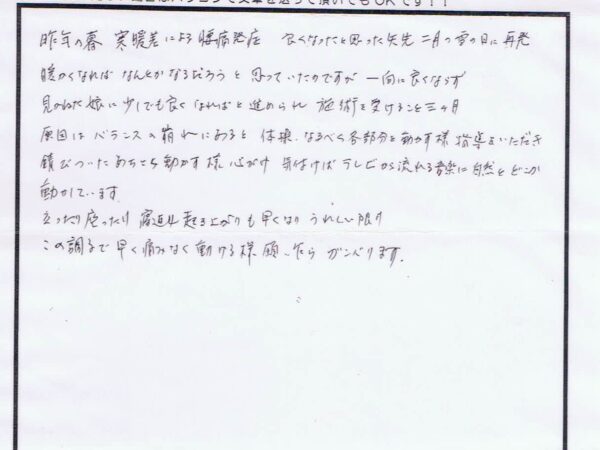 パソコンで文章を送って頂いてもOKです！！
昨年の暮 寒暖差による腰痛発症 良くなったと思った矢先 二月の雪の日に再発
暖かくなればなんとかなるだろうと思っていたのですが 一向に良くならず
見かねた娘に少しでも良くなればと進められ 施術を受けること三ヶ月
原因はバランスの崩れにあると 体操、なるべく各部分を動かす様 指導をいただき
錆びついたあちこち動かす様 心がけ 気付けば テレビから流れる音楽に自然とどこか
動かしています
立ったり座ったり 寝返り 起き上がりも早くなり うれしい限り
この調子で早く痛みなく動ける様 願いながら ガンバります.